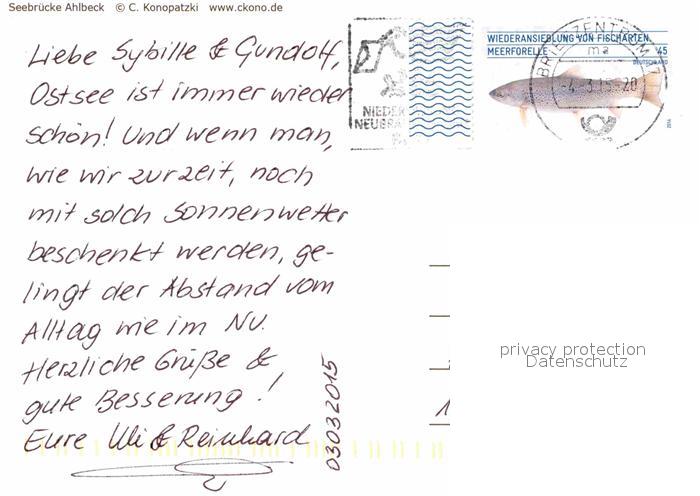 Seebrücke Ahlbeck © C. Konopatzki www.ckono.de
Liebe Sybille & Gundolf,
Ostsee ist immer wieder
schön! Und wenn man,
wie wir zurzeit, noch
mit solch Sonnenwetter
beschenkt werden, ge-
lingt der Abstand vom
Alltag wie im Nu.
Herzliche Grüße &
gute Besserung!
Eure Uli & Reinhard
03032015
NIEDER
NEUBRA
WIEDERANSIEDLUNG VON FISCHARTEN
MEERFORELLE 45
DEUTSCHLAND
BRIEFZENTRUM
ma
-4.3.15-20
privacy protection
Datenschutz
1